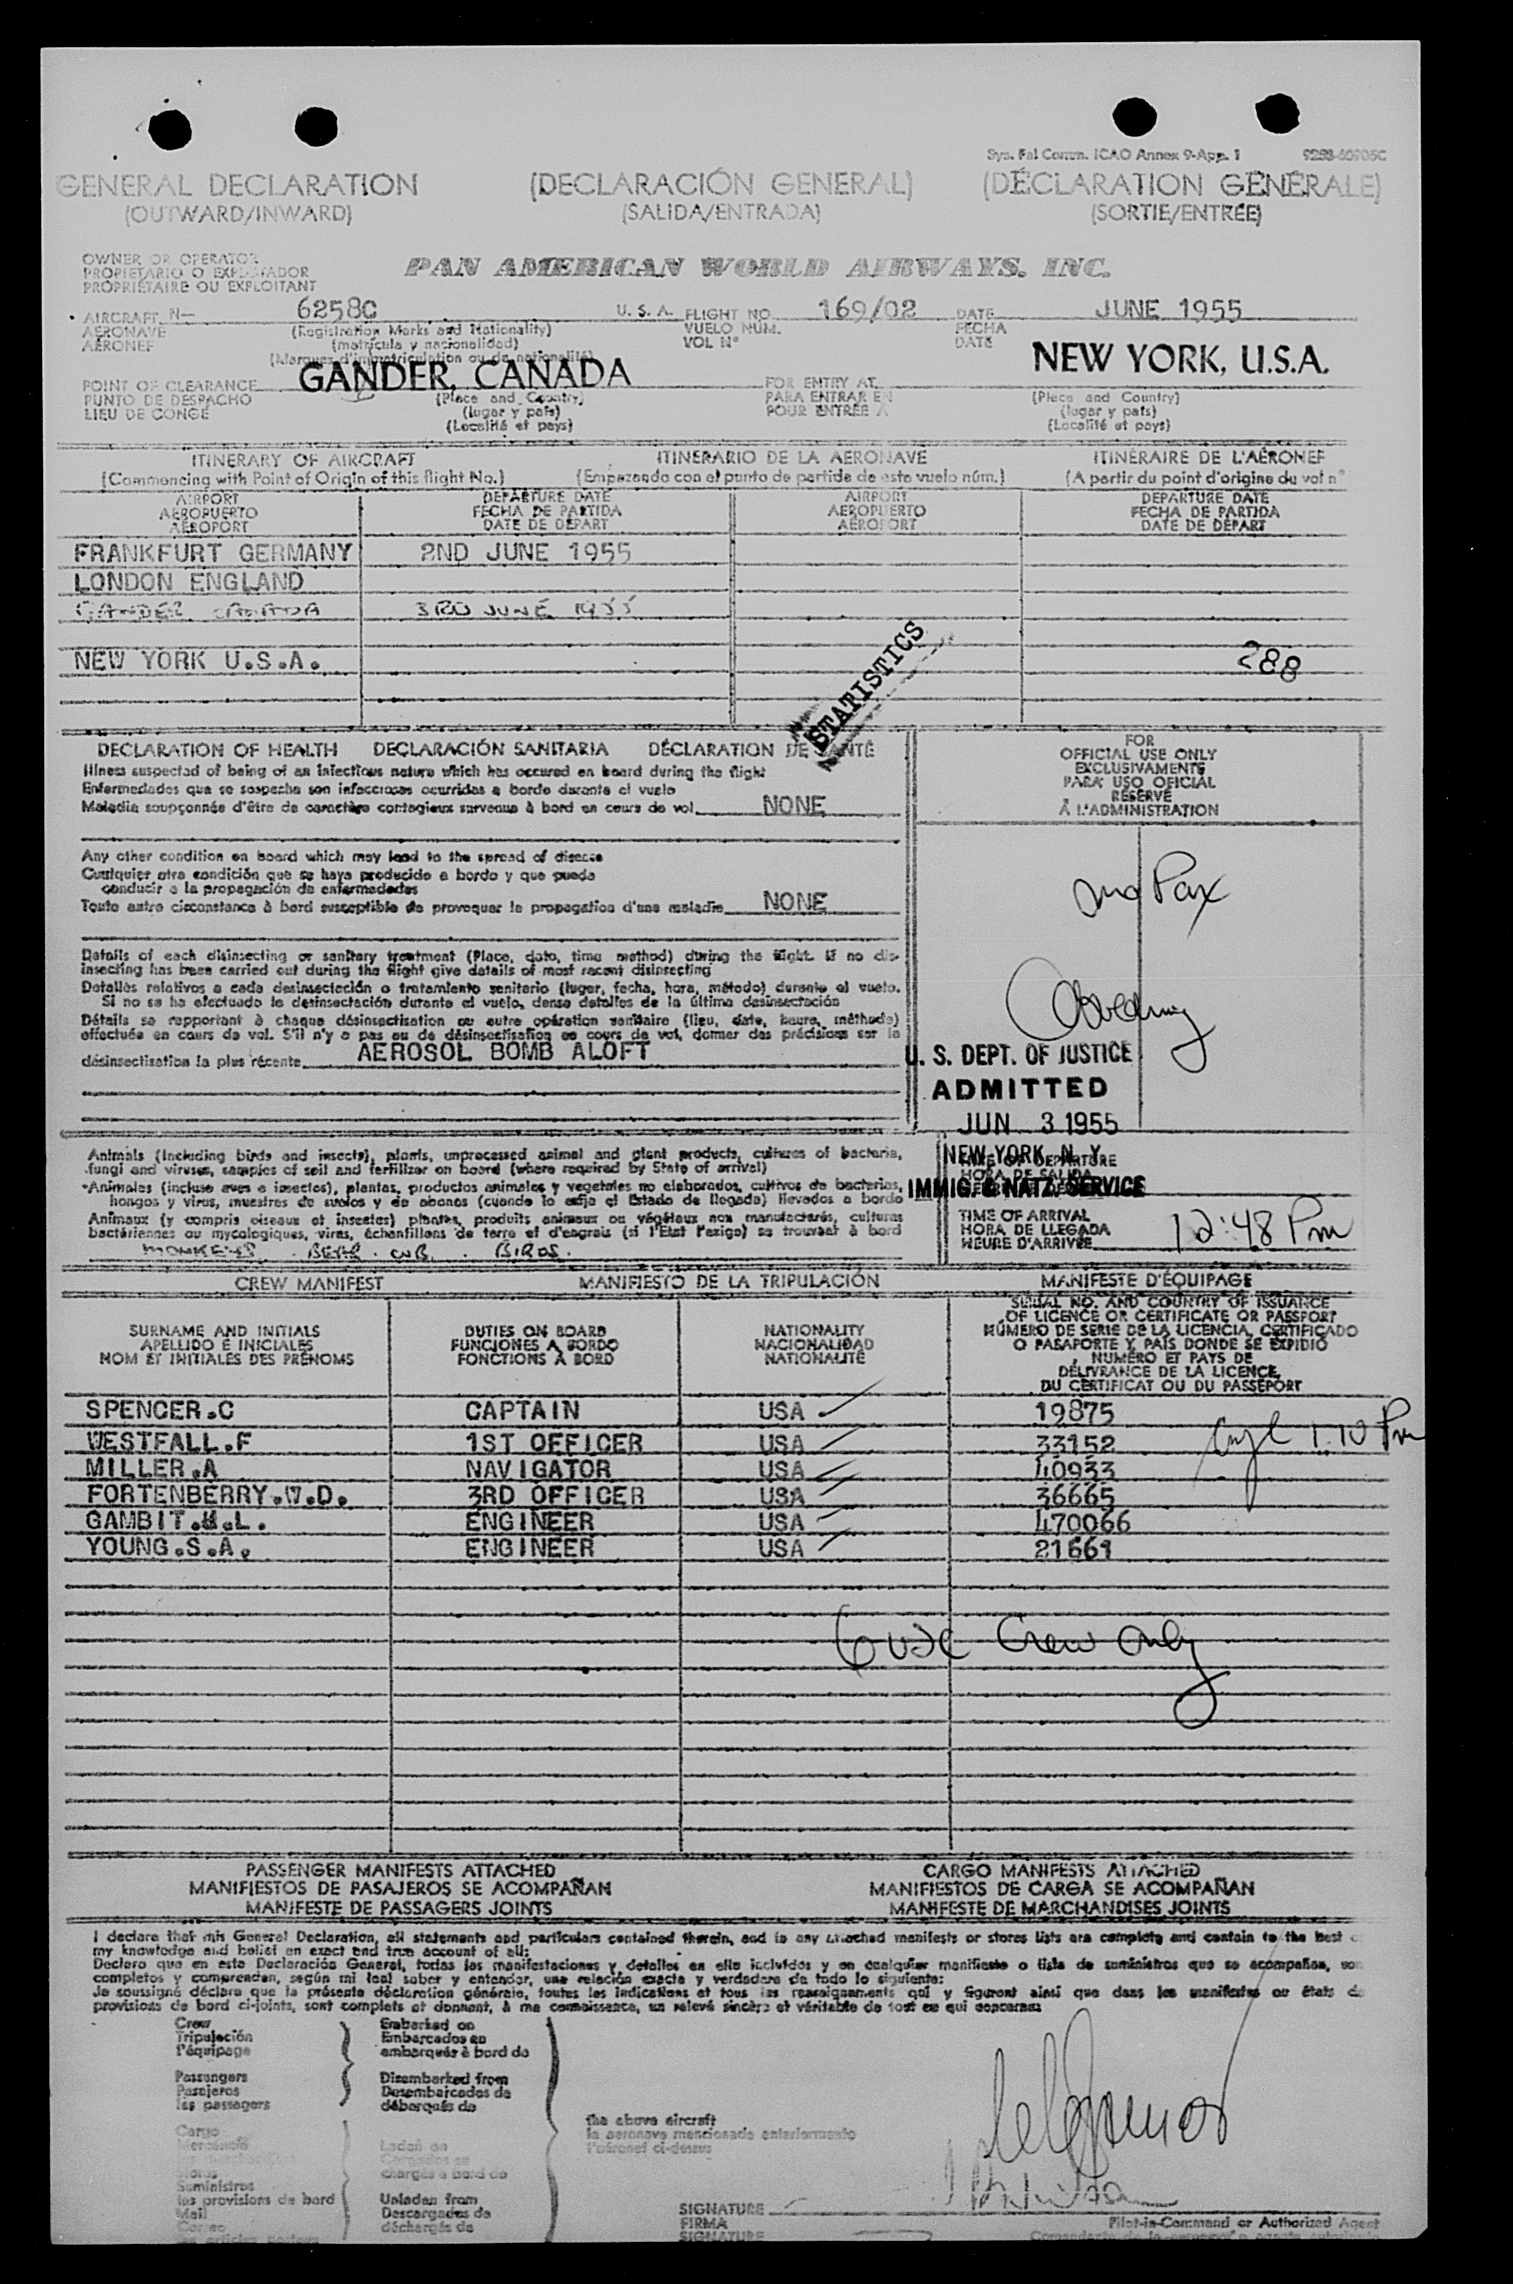 Sys. Fal Comm. ICAO Annex 9-App. 1
GENERAL DECLARATION (DECLARACIÓN GENERAL) (DÉCLARATION GÉNÉRALE)
(OUTWARD/INWARD) (SALIDA/ENTRADA) (SORTIE/ENTRÉE)
OWNER OR OPERATOR
PROPIETARIO O EXPLOTADOR
PROPRIÉTAIRE OU EXPLOITANT
PAN AMERICAN WORLD AIRWAYS, INC.
AIRCRAFT N— 6258C U. S. A. FLIGHT NO. 169/02 DATE JUNE 1955
AERONAVE (Registration Marks and Nationality) VUELO NÚM. FECHA
AÉRONEF (matrícula y nacionalidad) VOL Nº DATE
(Marques d'immatriculation ou de nationalité)
POINT OF CLEARANCE GANDER, CANADA FOR ENTRY AT NEW YORK, U.S.A.
PUNTO DE DESPACHO (Place and Country) PARA ENTRAR EN (Place and Country)
LIEU DE CONGÉ (lugar y país) POUR ENTRÉE A (lugar y país)
(Localité et pays) (Localité et pays)
ITINERARY OF AIRCRAFT ITINERARIO DE LA AERONAVE ITINÉRAIRE DE L'AÉRONEF
(Commencing with Point of Origin of this flight No.) (Empezando con el punto de partida de este vuelo núm.) (A partir du point d'origine du vol nº
AIRPORT DEPARTURE DATE AIRPORT DEPARTURE DATE
AEROPUERTO FECHA DE PARTIDA AEROPUERTO FECHA DE PARTIDA
AÉROPORT DATE DE DÉPART AÉROPORT DATE DE DÉPART
FRANKFURT GERMANY 2ND JUNE 1955
LONDON ENGLAND
GANDER CANADA 3RD JUNE 1955
NEW YORK U.S.A.
288
STATISTICS
DECLARATION OF HEALTH DECLARACIÓN SANITARIA DÉCLARATION DE SANTÉ
Illness suspected of being of an infectious nature which has occured on board during the flight
Enfermedades que se sospecha son infecciosas ocurridas a bordo durante el vuelo
Maladie soupçonnée d'être de caractère contagieux survenue à bord en cours de vol NONE
Any other condition on board which may lead to the spread of disease
Cualquier otra condición que se haya producido a bordo y que pueda
conducir a la propagación de enfermedades
Toute autre circonstance à bord susceptible de provoquer la propagation d'une maladie NONE
Details of each disinsecting or sanitary treatment (Place, date, time method) during the flight. If no dis-
insecting has been carried out during the flight give details of most recent disinsecting
Detalles relativos a cada desinsectación o tratamiento sanitario (lugar, fecha, hora, método) durante el vuelo.
Si no se ha efectuado la desinsectación durante el vuelo, dense detalles de la última desinsectación
Détails se rapportant à chaque désinsectisation ou autre opération sanitaire (lieu, date, heure, méthode)
effectuée en cours de vol. S'il n'y a pas eu de désinsectisation en cours de vol, donner des précisions sur la
désinsectisation la plus récente AEROSOL BOMB ALOFT
FOR
OFFICIAL USE ONLY
EXCLUSIVAMENTE
PARA USO OFICIAL
RÉSERVÉ
À L'ADMINISTRATION
no Pax
U. S. DEPT. OF JUSTICE
ADMITTED
JUN 3 1955
NEW YORK, N. Y.
IMMIG. & NATZ. SERVICE
Animals (including birds and insects), plants, unprocessed animal and plant products, cultures of bacteria,
fungi and viruses, samples of soil and fertilizer on board (where required by State of arrival)
Animales (incluso aves e insectos), plantas, productos animales y vegetales no elaborados, cultivos de bacterias,
hongos y virus, muestras de suelos y de abonos (cuando lo exija el Estado de llegada) llevados a bordo
Animaux (y compris oiseaux et insectes) plantes, produits animaux ou végétaux non manufacturés, cultures
bactériennes ou mycologiques, virus, échantillons de terre et d'engrais (si l'Etat l'exige) se trouvant à bord
MONKEYS. BEAR CUB. BIRDS.
TIME OF DEPARTURE
HORA DE SALIDA
TIME OF ARRIVAL
HORA DE LLEGADA
HEURE D'ARRIVÉE 12:48 Pm
CREW MANIFEST MANIFIESTO DE LA TRIPULACIÓN MANIFESTE D'ÉQUIPAGE
SURNAME AND INITIALS
APELLIDO E INICIALES
NOM ET INITIALES DES PRÉNOMS
DUTIES ON BOARD
FUNCIONES A BORDO
FONCTIONS À BORD
NATIONALITY
NACIONALIDAD
NATIONALITÉ
SERIAL NO. AND COUNTRY OF ISSUANCE
OF LICENCE OR CERTIFICATE OR PASSPORT
NÚMERO DE SERIE DE LA LICENCIA, CERTIFICADO
O PASAPORTE Y PAÍS DONDE SE EXPIDIÓ
NUMÉRO ET PAYS DE
DÉLIVRANCE DE LA LICENCE,
DU CERTIFICAT OU DU PASSEPORT
SPENCER.C CAPTAIN USA 19875
WESTFALL.F 1ST OFFICER USA 33152 1:10 Pm
MILLER.A NAVIGATOR USA 40933
FORTENBERRY.W.D. 3RD OFFICER USA 36665
GAMBIT.H.L. ENGINEER USA 470066
YOUNG.S.A. ENGINEER USA 21661
6 USC Crew Only
PASSENGER MANIFESTS ATTACHED CARGO MANIFESTS ATTACHED
MANIFIESTOS DE PASAJEROS SE ACOMPAÑAN MANIFIESTOS DE CARGA SE ACOMPAÑAN
MANIFESTE DE PASSAGERS JOINTS MANIFESTE DE MARCHANDISES JOINTS
I declare that this General Declaration, all statements and particulars contained therein, and in any attached manifests or stores lists are complete and contain to the best
my knowledge and belief an exact and true account of all:
Declaro que en esta Declaración General, todas las manifestaciones y detalles en ella incluidos y en cualquier manifiesto o lista de suministros que se acompañan, son
completos y comprenden, según mi leal saber y entender, una relación exacta y verdadera de todo lo siguiente:
Je soussigné déclare que la présente déclaration générale, toutes les indications et tous les renseignements qui y figurent ainsi que dans les manifestes ou états de
provisions de bord ci-joints, sont complets et donnent, à ma connaissance, un relevé sincère et véritable de tout ce qui concerne:
Crew Embarked on
Tripulación Embarcados en
l'équipage embarqués à bord de
Passengers Disembarked from
Pasajeros Desembarcados de
les passagers débarqués de
the above aircraft
la aeronave mencionada anteriormente
l'aéronef ci-dessus
Cargo
Mercancía Laden on
Cargados en
Stores chargés à bord de
Suministros
les provisions de bord Unladen from
Mail Descargados de
Correo déchargés de
SIGNATURE
FIRMA Pilot-in-Command or Authorized Agent
SIGNATURE